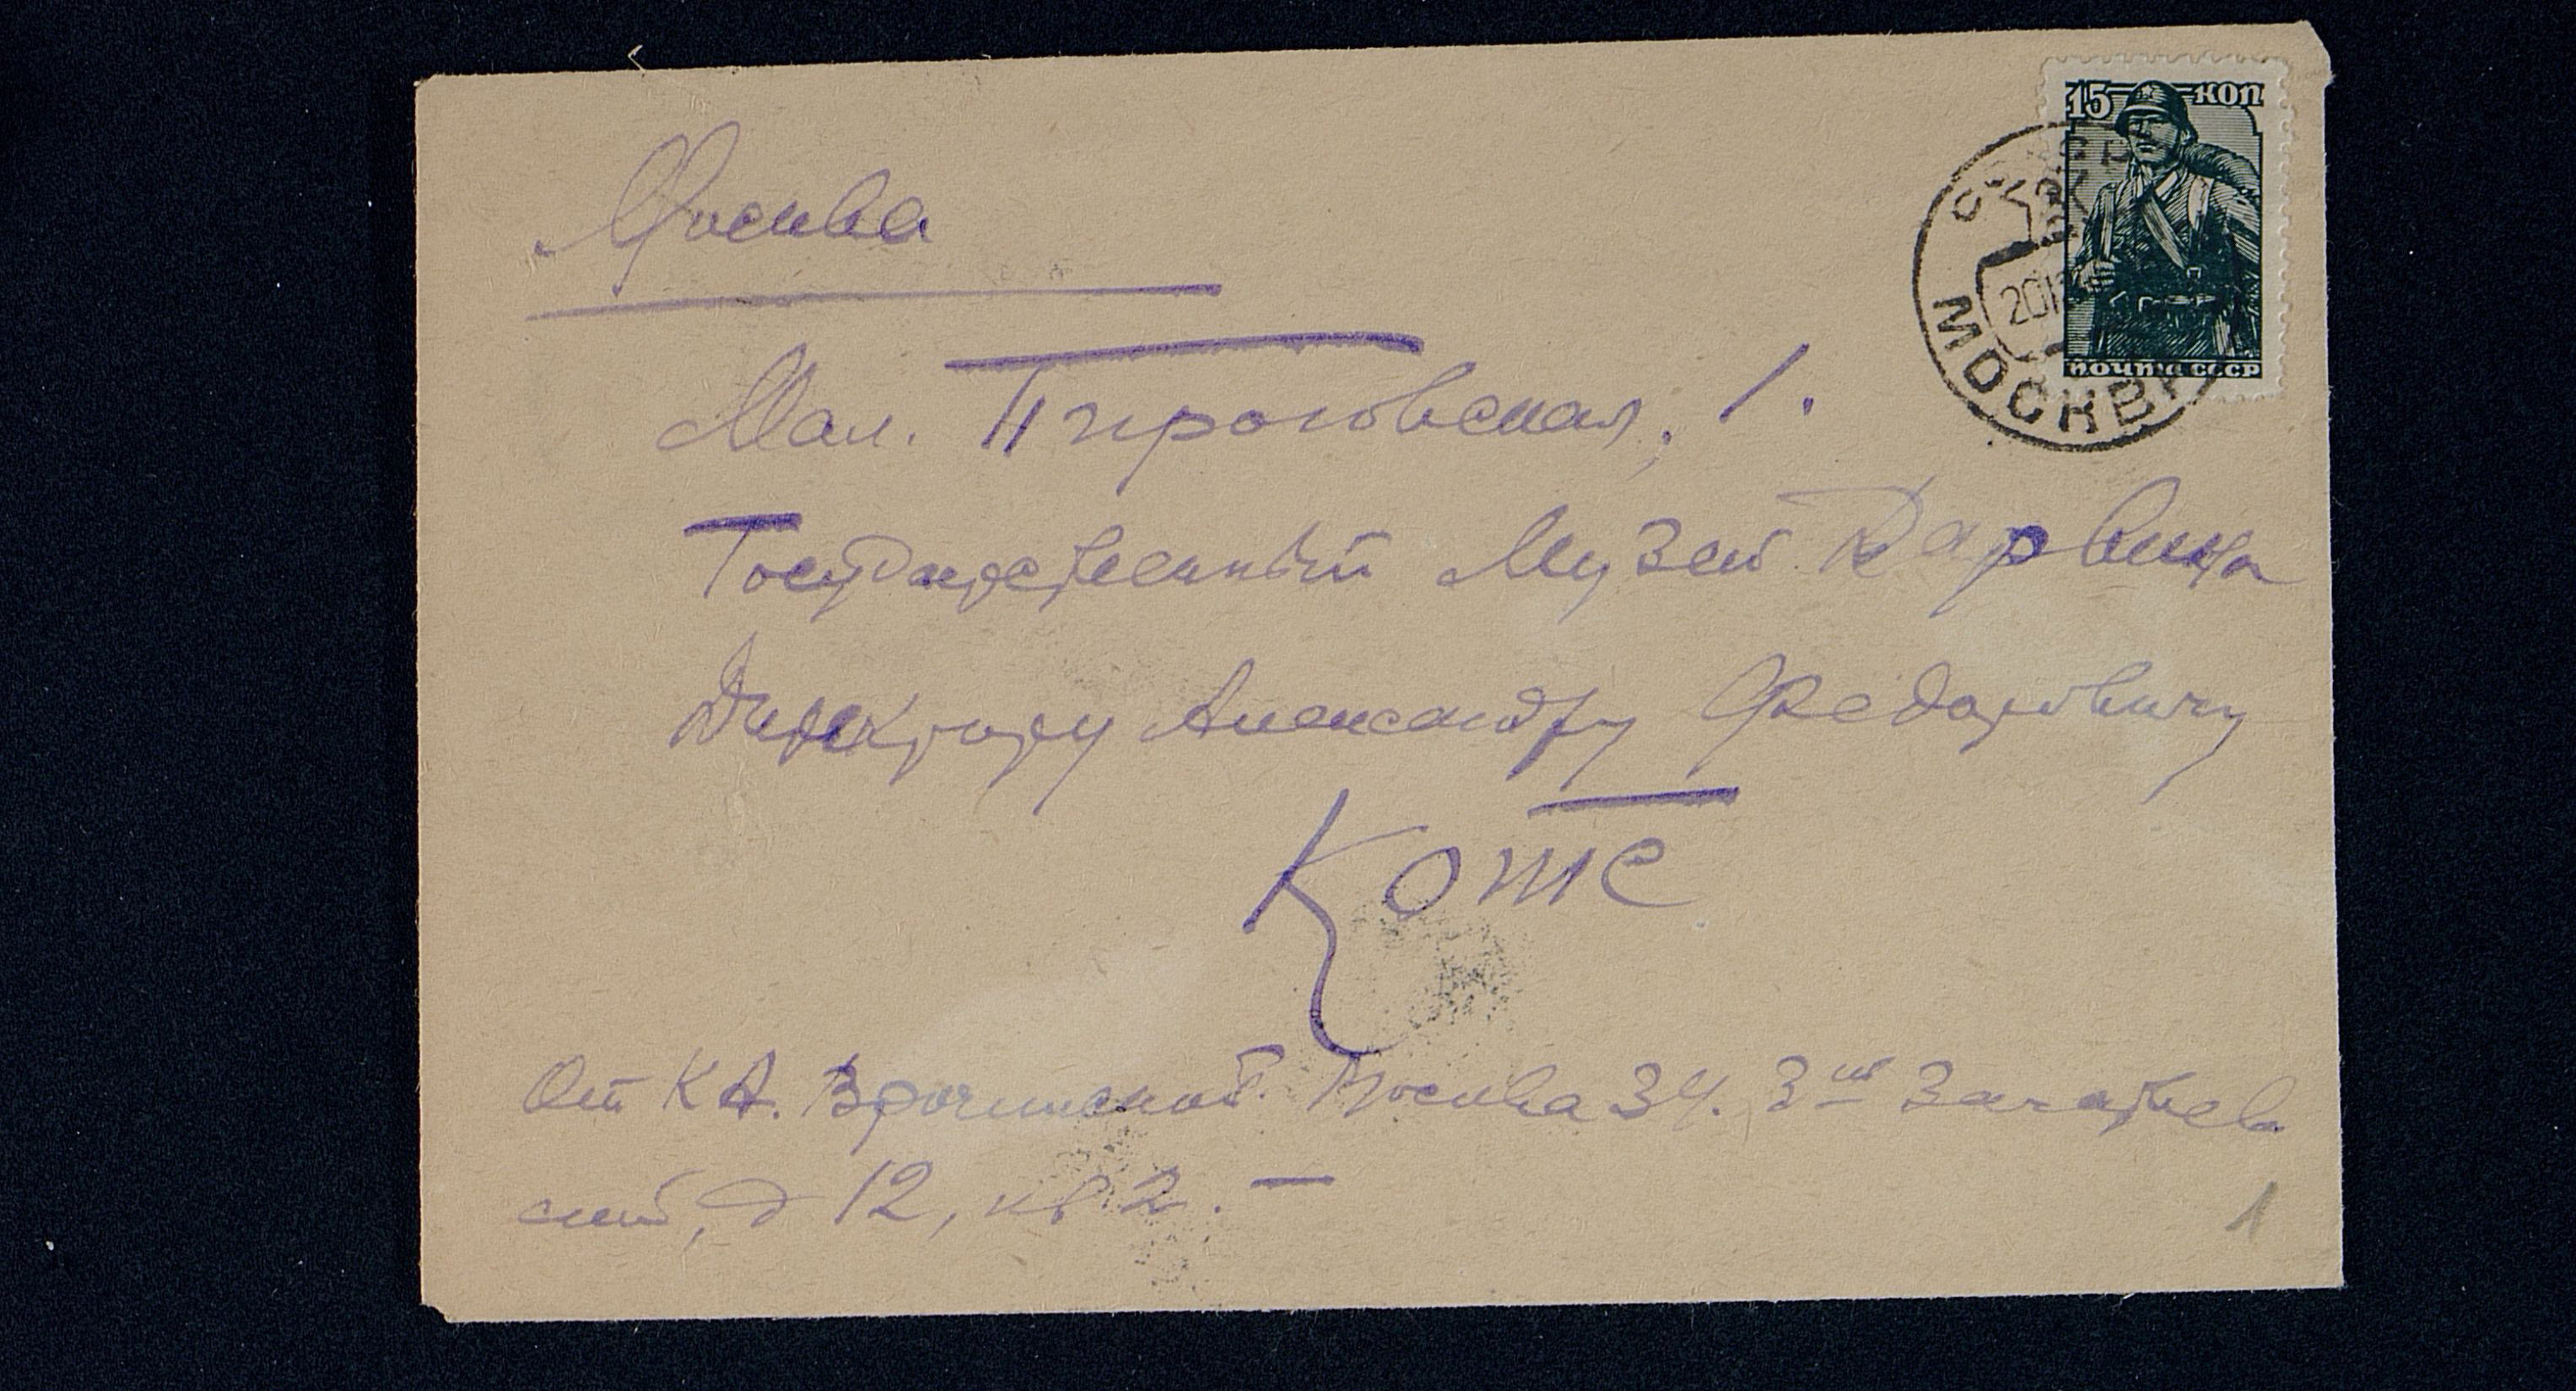 15 КОП
ПОЧТА СССР
МОСКВА
2011
Москва
Мал. Пироговская, 1.
Государственный Музей Дарвина
Директору Александру Федоровичу
Котс
От К А. Москва 34. 3ий Зачатьев
ский, д 12, кв 2. —
1